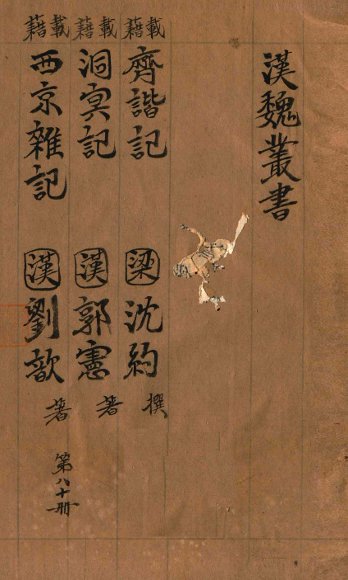 漢魏叢書
載籍 齊諧記 梁 沈約 撰
載籍 洞冥記 漢 郭憲 著
載籍 西京雜記 漢 劉歆 著
第八十冊